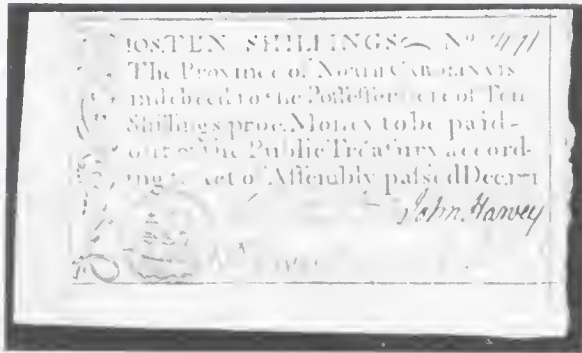 10S. TEN SHILLINGS No
The Province of NORTH CAROLINA is
indebted to the Poſſeſſor hereof Ten
Shillings proc. Money to be paid
out of the Public Treaſury accord-
ing to Act of Aſſembly paſsed Decem
John Harvey